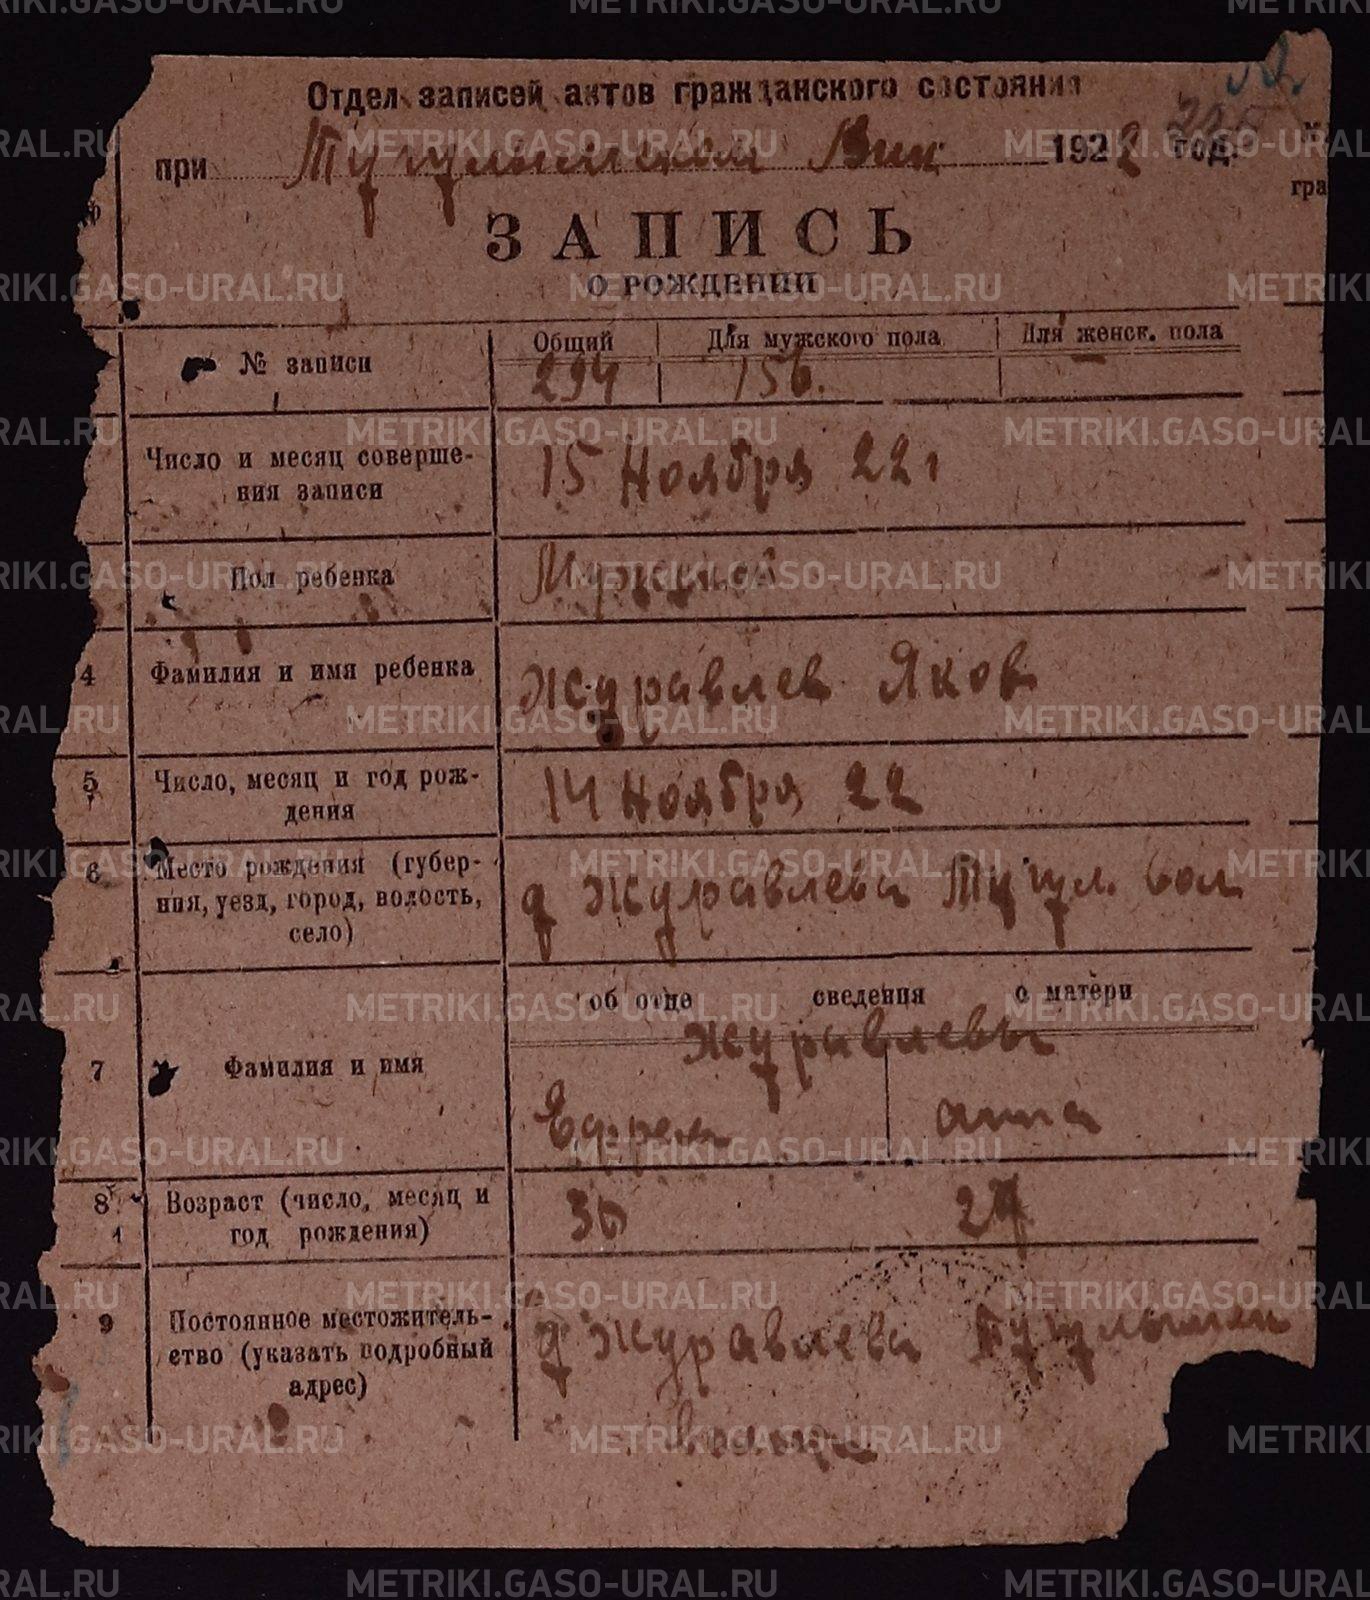 Отдел записей актов гражданского состояния
при Тугулымском Вик 1922 год.
гра
ЗАПИСЬ
О РОЖДЕНИИ
№ записи
Общий Для мужского пола Для женск. пола
294 156. —
Число и месяц соверше-
ния записи
15 Ноября 22 г
Пол ребенка
Мужской
4 Фамилия и имя ребенка
Журавлев Яков
5 Число, месяц и год рож-
дения
14 Ноября 22
6 Место рождения (губер-
ния, уезд, город, волость,
село)
д Журавлева Тугул. вол
об отце сведения о матери
Журавлевы
7 Фамилия и имя
Ефрем Анна
8 Возраст (число, месяц и
год рождения)
36
9 Постоянное местожитель-
ство (указать подробный
адрес)
д Журавлева
METRIKI.GASO-URAL.RU